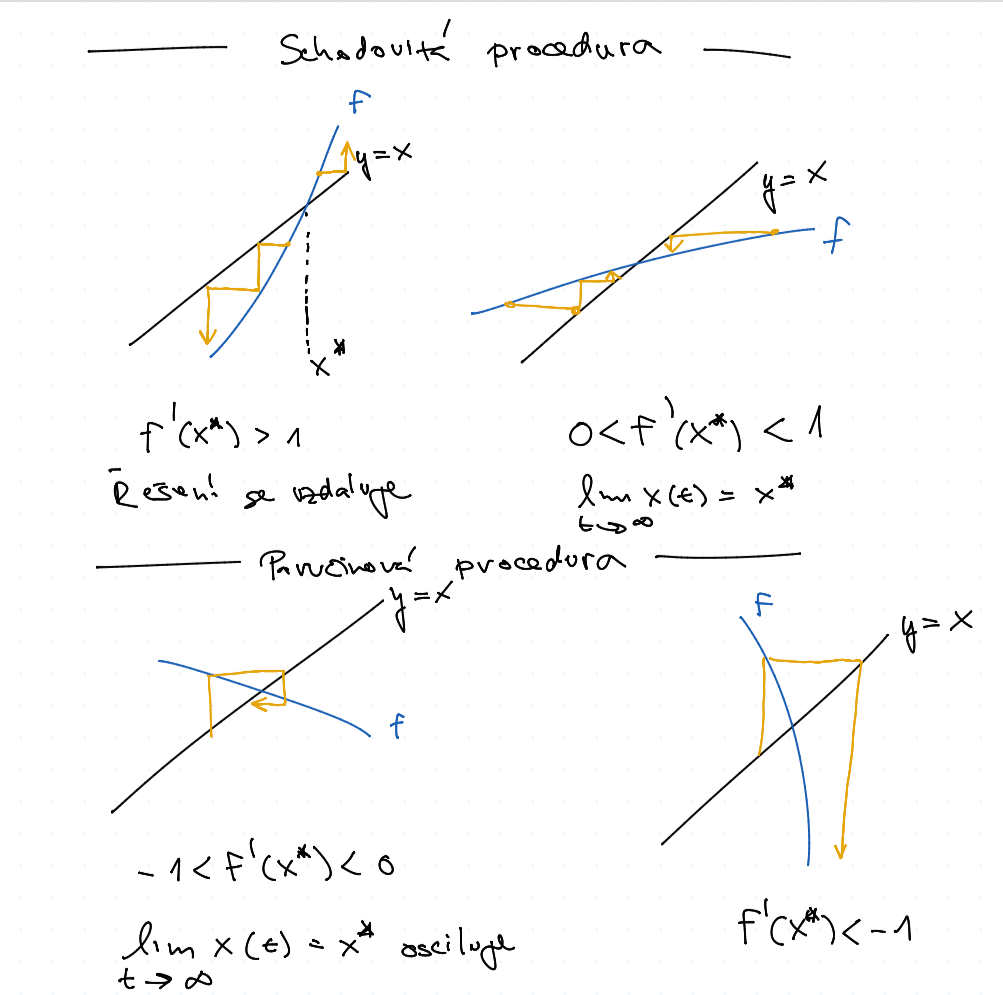 Schodovitá procedura
f
y = x
y = x
f
x*
f'(x*) > 1
0 < f'(x*) < 1
Řešení se vzdaluje
lim x(t) = x*
t → ∞
Pavučinová procedura
y = x
f
y = x
f
-1 < f'(x*) < 0
f'(x*) < -1
lim x(t) = x* osciluje
t → ∞